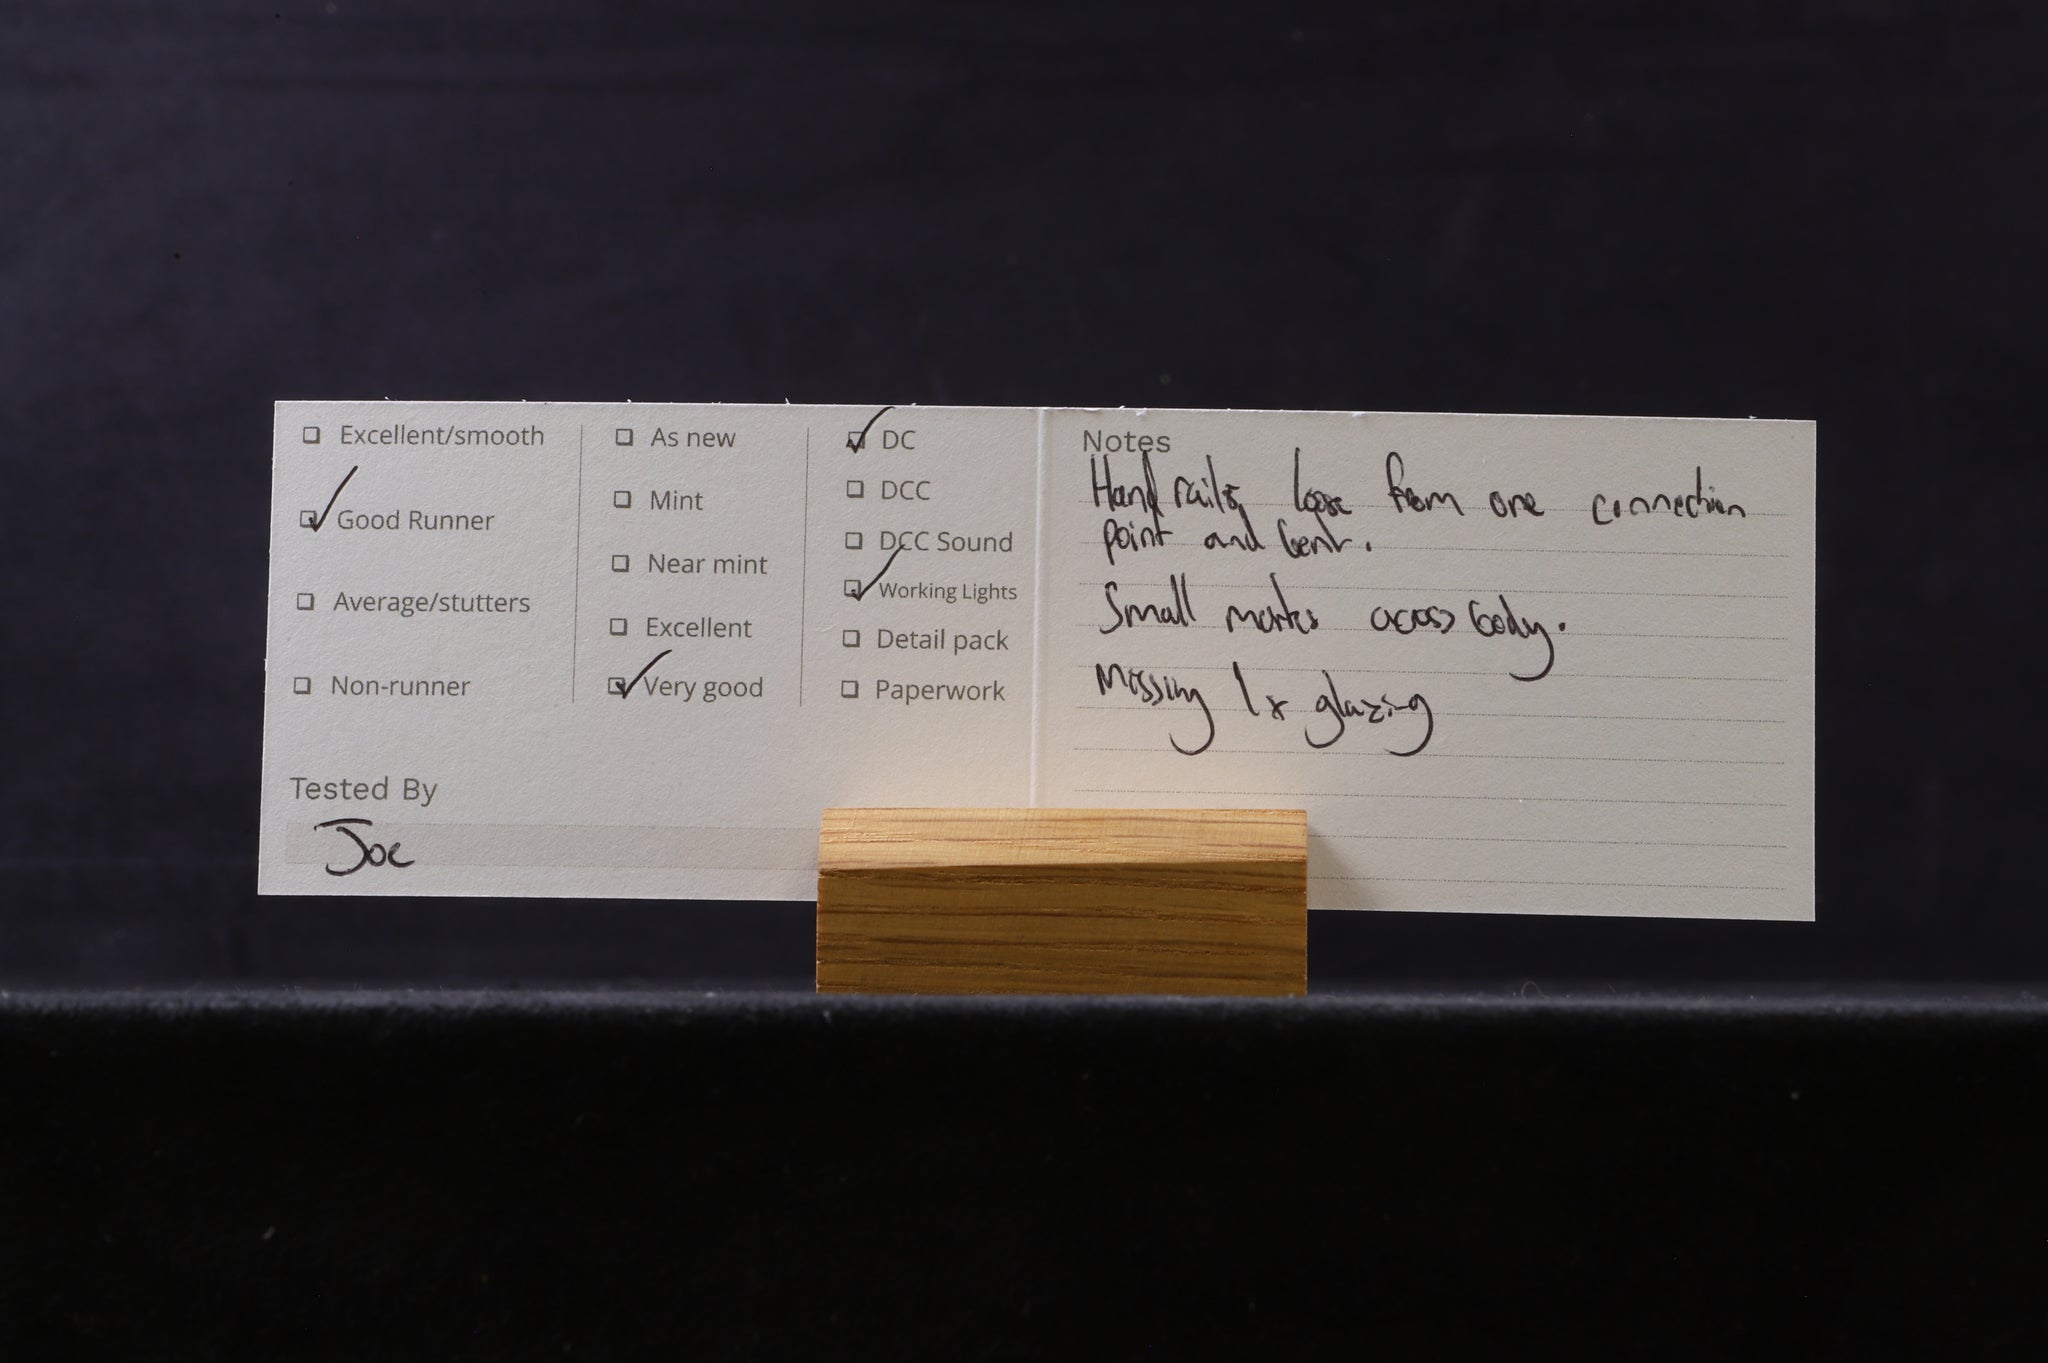 Excellent/smooth
Good Runner
Average/stutters
Non-runner
As new
Mint
Near mint
Excellent
Very good
DC
DCC
DCC Sound
Working Lights
Detail pack
Paperwork
Tested By
Joe
Notes
Hand rails loose from one connection
point and bent.
Small marks across body.
Missing 1x glazing